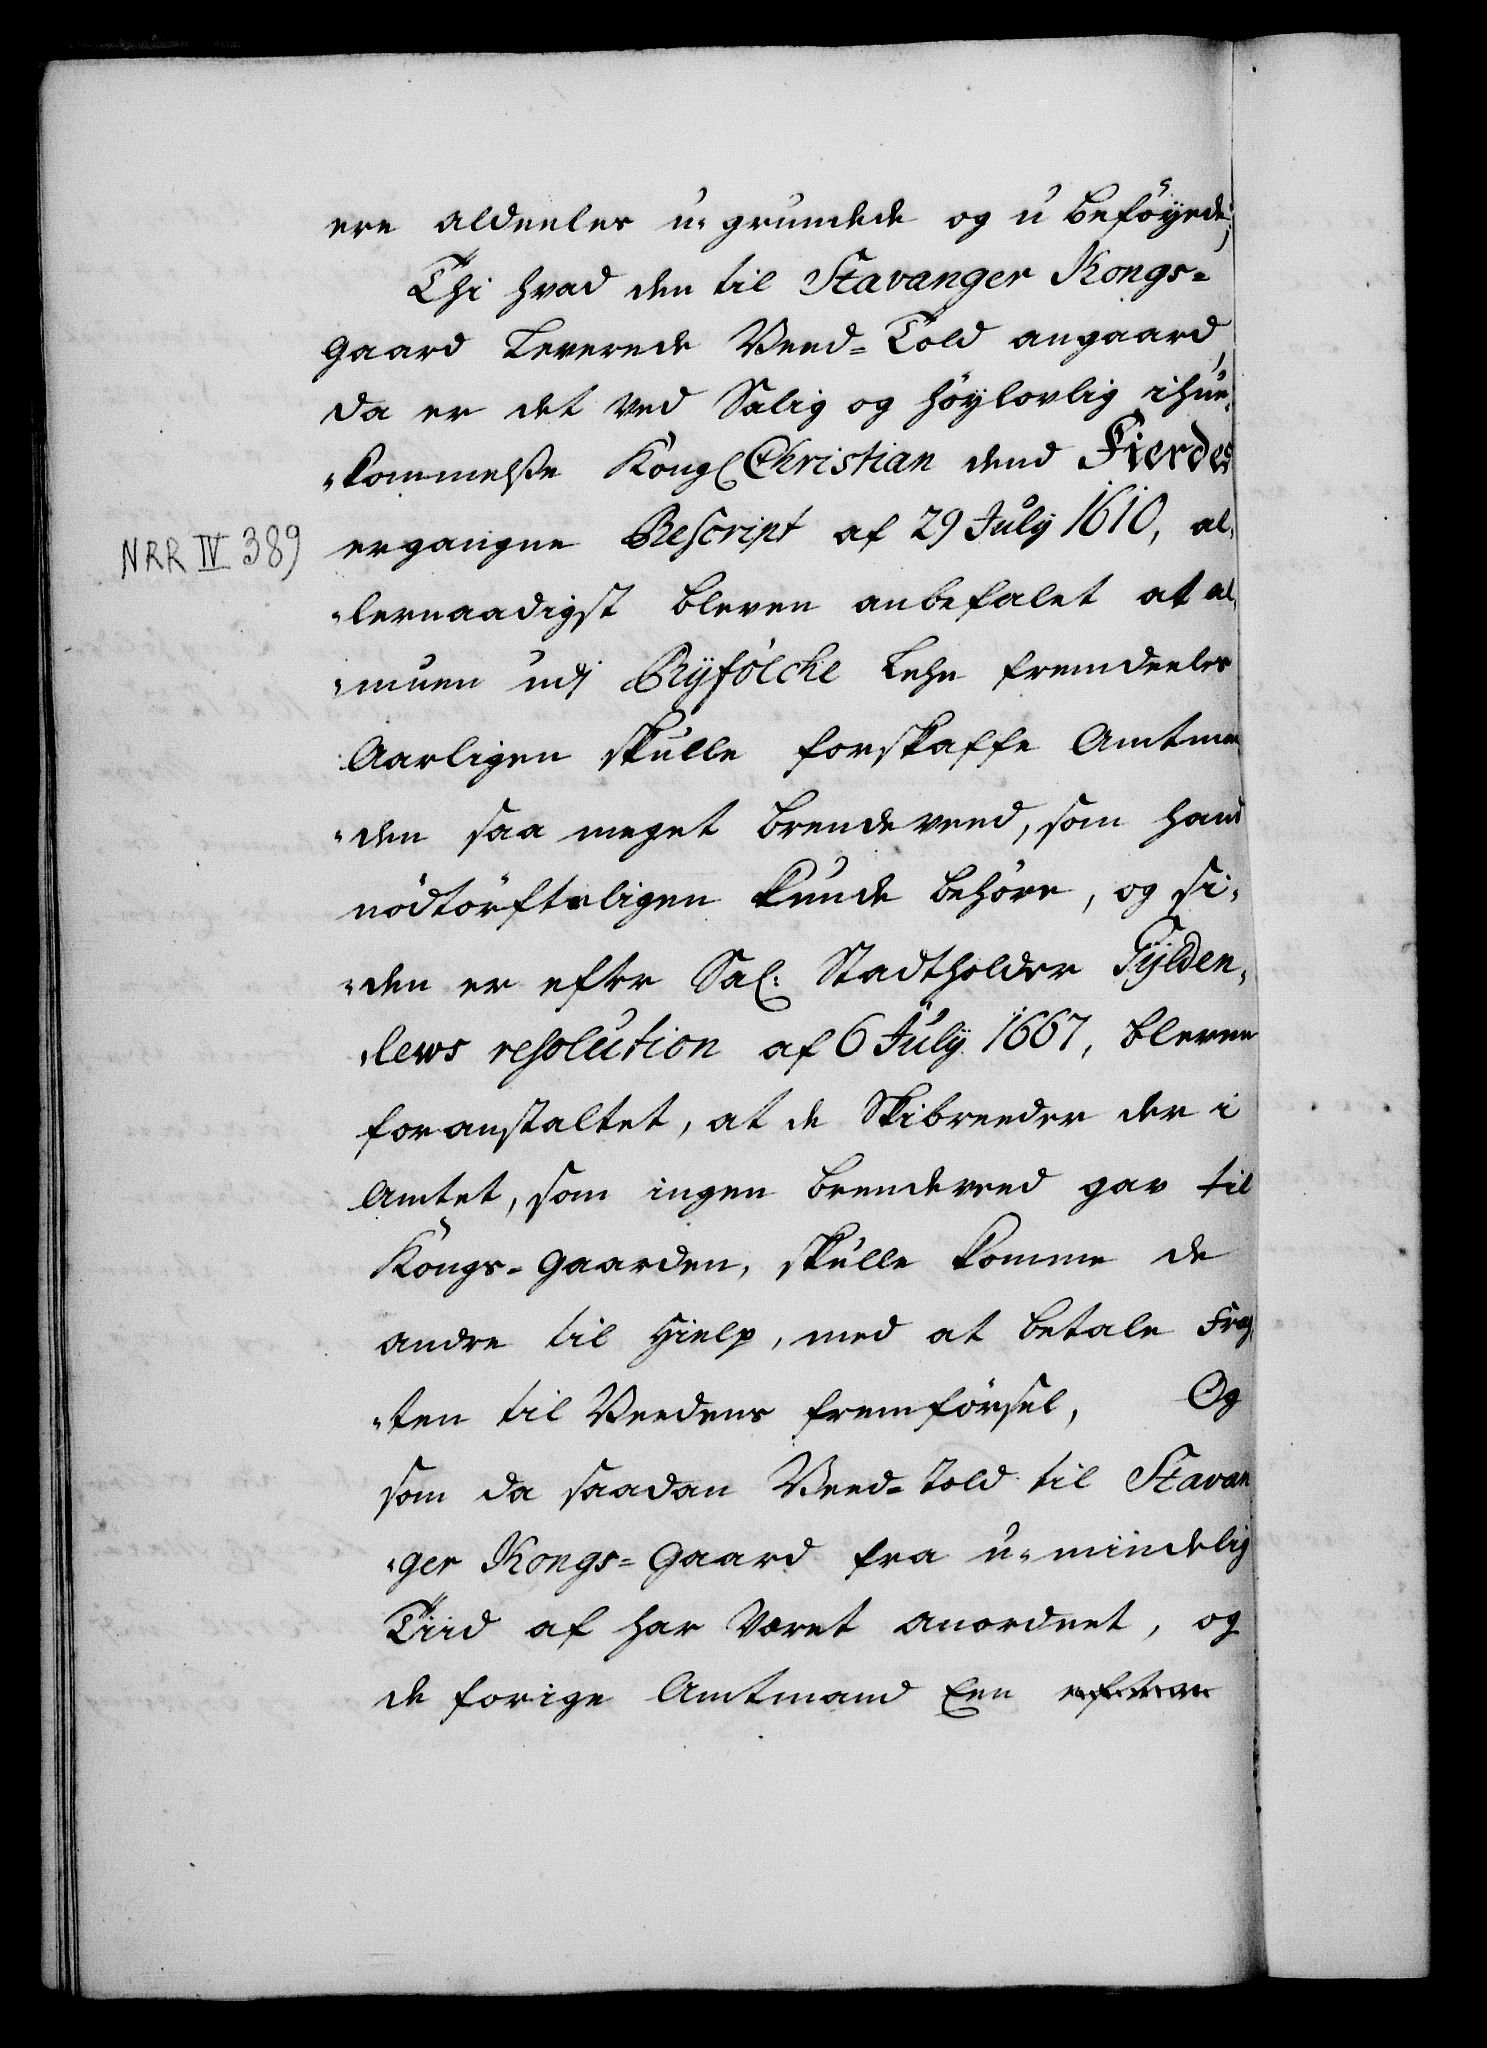 ere aldeeles u-grundede og u beföyede;
Thi hvad den til Stavanger Kongs=
gaard Leverede Veed=Told angaard,
da er det ved Salig og höylovlig ihue-
-kommelsse Kong Christian dend Fierdes
NRR IV 389
ergangne Rescript af 29 July 1610, al-
-lernaadigst bleven anbefalet at al-
-muen udj Ryfölcke Lehn fremdeeles
Aarligen skulle forskaffe Amtman
-den saa meget brendeveed, som hand
nödtörfteligen kunde behöve, og si-
-den er efter Sal: Stadtholder Gylden-
-lews resolution af 6 July 1667, bleven
foranstaltet, at de Skibreeder der i
Amtet, som ingen brendeveed gav til
Kongs-Gaarden, skulle komme de
andre til Hielp, med at betale Frag-
-ten til Veedens fremförsel, Og
som da saadan Veed=Told til Stavan
-ger Kongs=Gaard fra u-mindelig
Tiid af har været anordnet, og
de forige Amtmand Een